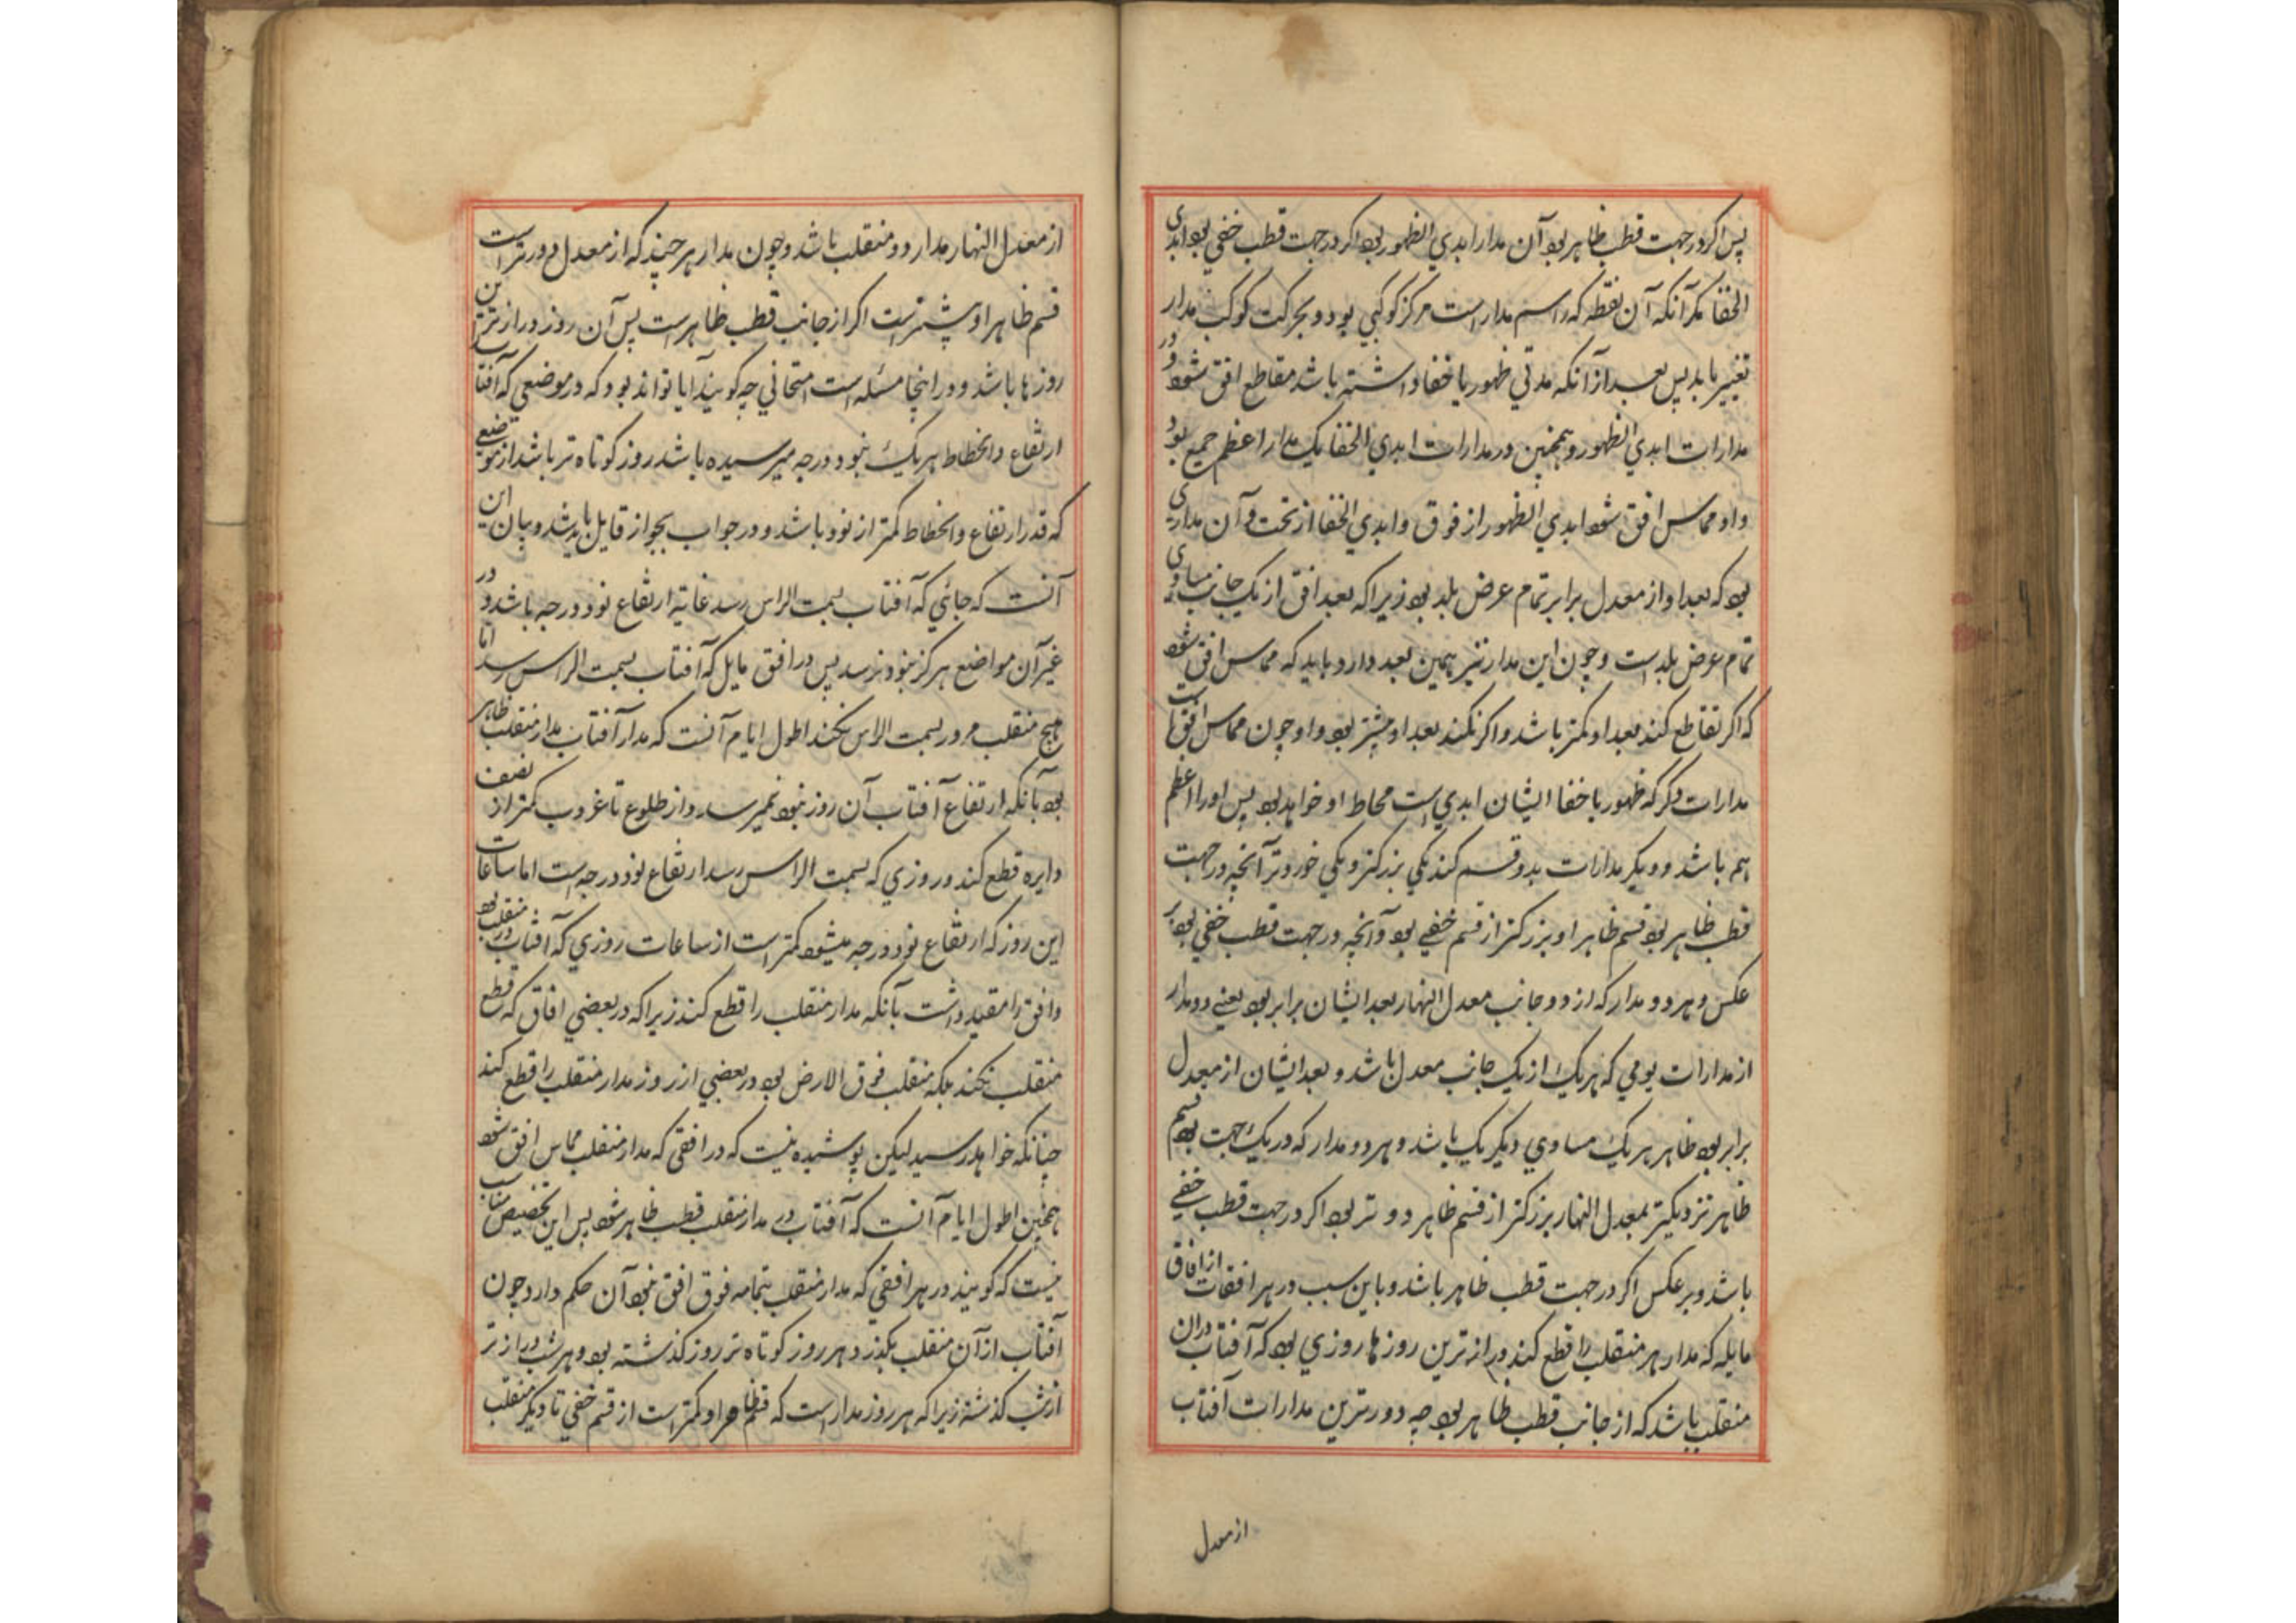 پس اکر در جهت قطب ظاهر بود آن مدار ابدي الظهور بود اکر در جهت قطب خفي بود ابدی
الخفا مکر آنکه آن نقطه که راسم مدار است مرکز کوکبي بود و بحرکت کوکب مدار
تغییر یابد پس بعد از آنکه مدتي ظهور یا خفا داشته باشد مقاطع افق شود و در
مدارات ابدي الظهور و همچنین در مدارات ابدي الخفا یک مدار اعظم جمیع بود
و او مماس افق شود ابدي الظهور از فوق و ابدي الخفا از تحت و آن مداری
بود که بعد او از معدل برابر تمام عرض بلد بود زیرا که بعد افق از یک جانب مساوی
تمام عرض بلد است و چون این مدار نیز همین بعد دارد باید که مماس افق شود
که اکر تقاطع کند بعد او کمتر باشد و اکر نکند بعد او بیشتر بود و او چون مماس افق است
مدارات دیکر که ظهور یا خفا ایشان ابدي است محاط او خواهد بود پس او را اعظم
هم باشد و دیکر مدارات بدو قسم کند یکي بزرکتر و یکي خوردتر آنچه در جهت
قطب ظاهر بود قسم ظاهر او بزرکتر از قسم خفي بود و آنچه در جهت قطب خفي بود بر
عکس و هر دو مدار که از دو جانب معدل النهار بعد ایشان برابر بود یعني دو مدار
از مدارات یومي که هر یک از یک جانب معدل باشد و بعد ایشان از معدل
برابر بود ظاهر هر یک مساوي دیکر یک باشد و هر دو مدار که در یک جهت بود قسم
ظاهر نزدیکتر بمعدل النهار بزرکتر از قسم ظاهر دورتر بود اکر در جهت قطب خفي
باشد و بر عکس اکر در جهت قطب ظاهر باشد و باین سبب در هر از افاق
مایله که مدار هر منقلب را قطع کند دراز ترین روزها روزي بود که آفتاب دران
منقلب باشد که از جانب قطب ظاهر بود چه دورترین مدارات آفتاب
از معدل
از معدل النهار مدار دو منقلب باشد و چون مدار هر چند که از معدل دورتر است
قسم ظاهر او بیشتر است اکر از جانب قطب ظاهر است پس آن روز دراز ترین
روزها باشد و در اینجا مسئله است امتحاني چه کویند آیا تواند بود که در موضعي که آفتاب
ارتفاع و انحطاط هر یک بنود درجه میرسیده باشد روز کوتاه تر باشد از موضع
که قدر ارتفاع و انحطاط کمتر از نود باشد و در جواب بجواز قایل باید شد و بیان این
آنست که جائي که آفتاب بسمت الراس رسد غایة ارتفاع نود درجه باشد و در
غیر آن مواضع هرکز بنود نرسد پس در افق مایل که آفتاب بسمت الراس رسد اما
هیچ منقلب مرور بسمت الراس نکند اطول ایام آنست که مدار آفتاب مدار منقلب ظاهر
بود با آنکه ارتفاع آفتاب آن روز بنود نمیرسد و از طلوع تا غروب کمتر از نصف
دایره قطع کند و روزي که بسمت الراس رسد ارتفاع نود درجه است اما ساعات
این روز که ارتفاع نود درجه میشود کمتر است از ساعات روزي که آفتاب در منقلب بود
و افق را مقید داشت بآنکه مدار منقلب را قطع کند زیرا که در بعضي افاق که قطع
منقلب نکند بلکه منقلب فوق الارض بود در بعضي از روز مدار منقلب را قطع کند
چنانکه خواهد رسید لیکن پوشیده نیست که در افقي که مدار منقلب مماس افق شود
همچنین اطول ایام آنست که آفتاب در مدار منقلب قطب ظاهر شود پس این تخصیص مناسب
نیست که کویند در هر افقي که مدار منقلب بتمامه فوق افق نبود آن حکم دارد و چون
آفتاب از آن منقلب بکذرد هر روز کوتاه تر روز کذشته بود و هر شب دراز تر
از شب کذشته زیرا که هر روز مدار است که قسم ظاهر او کمتر است از قسم خفي تا دیکر منقلب